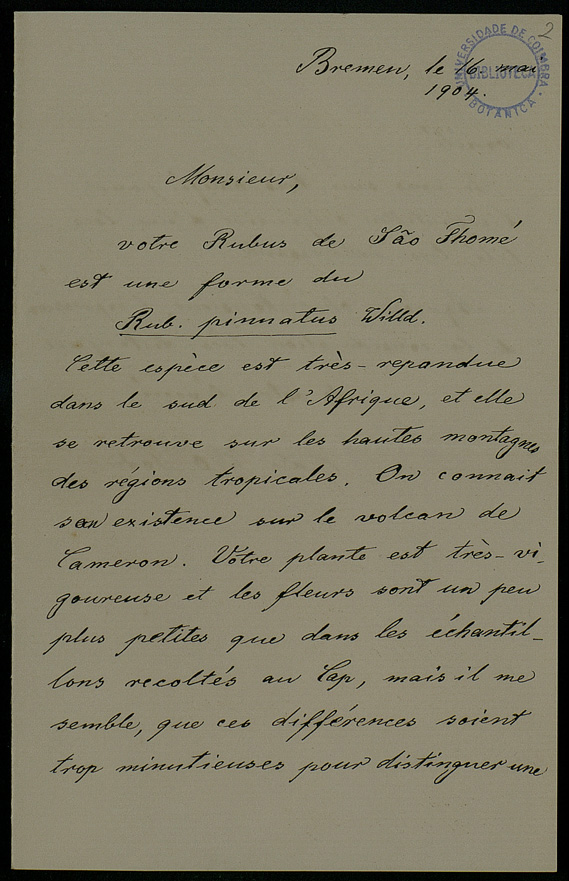 2
UNIVERSIDADE DE COIMBRA
BIBLIOTECA
BOTANICA
Bremen, le 16 mai
1904.
Monsieur,
votre Rubus de São Thomé
est une forme du
Rub. pinnatus Willd.
Cette espèce est très-repandue
dans le sud de l'Afrique, et elle
se retrouve sur les hautes montagnes
des régions tropicales. On connait
son existence sur le volcan de
Cameron. Vôtre plante est très-vi-
goureuse et les fleurs sont un peu
plus petites que dans les échantil-
lons recoltés au Cap, mais il me
semble, que ces différences soient
trop minutieuses pour distinguer une